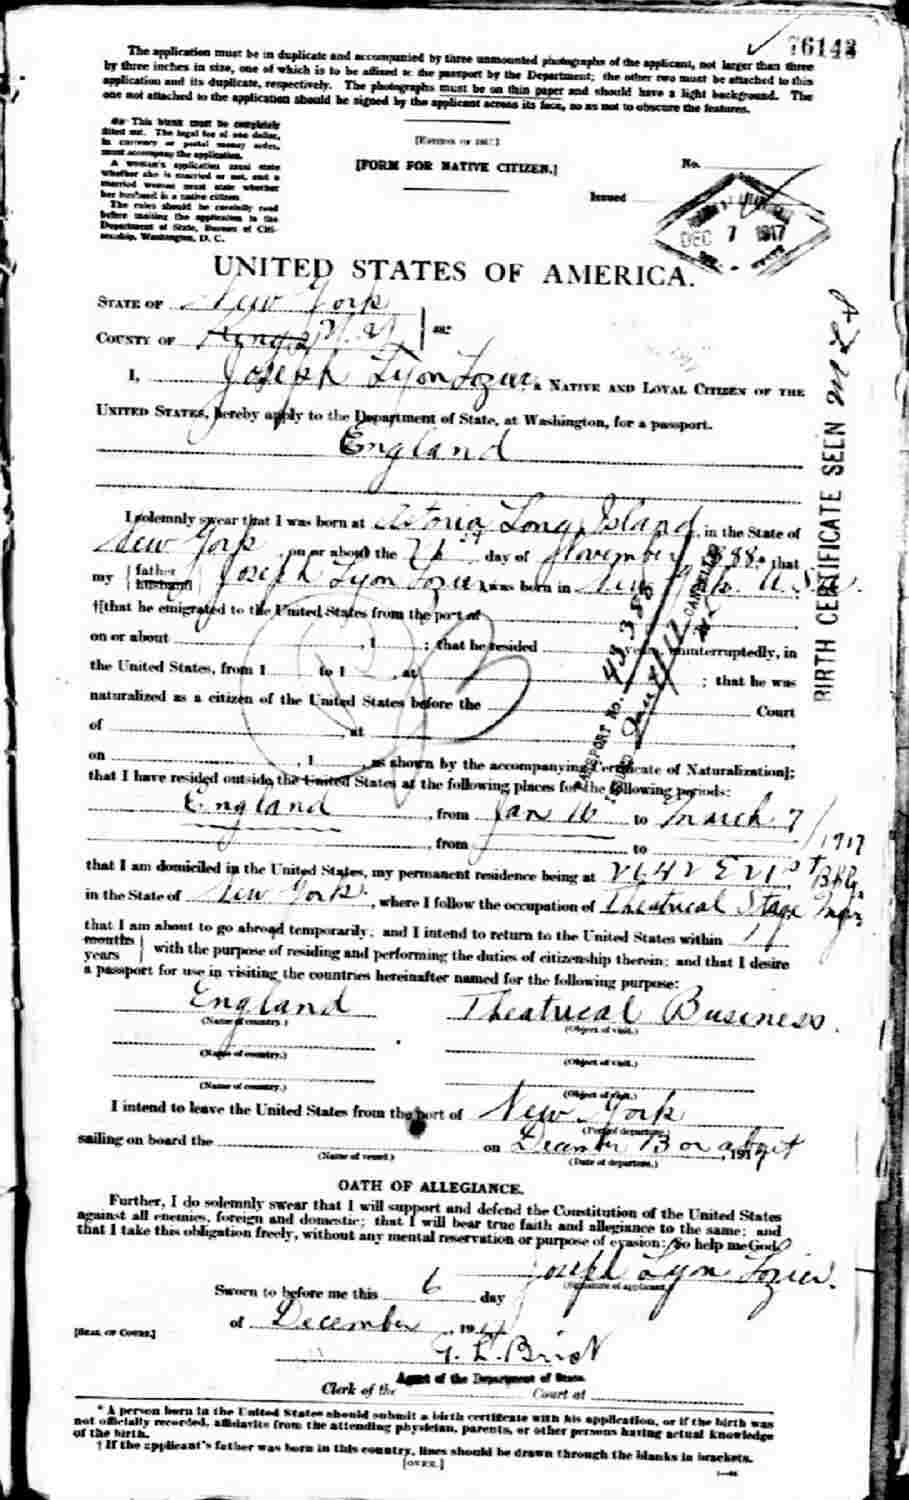 76143
The application must be in duplicate and accompanied by three unmounted photographs of the applicant, not larger than three
by three inches in size, one of which is to be affixed to the passport by the Department; the other two must be attached to this
application and its duplicate, respectively. The photographs must be on thin paper and should have a light background. The
one not attached to the application should be signed by the applicant across its face, so as not to obscure the features.
This blank must be completely
filled out. The legal fee of one dollar,
in currency or postal money order,
must accompany the application.
A woman's application must state
whether she is married or not, and a
married woman must state whether
her husband is a native citizen.
The rules should be carefully read
before mailing the application to the
Department of State, Bureau of Citi-
zenship, Washington, D. C.
[FORM FOR NATIVE CITIZEN.]
No.
Issued
DEC 7 1917
UNITED STATES OF AMERICA.
STATE OF New York
COUNTY OF Kings N.Y. ss:
I, Joseph Lyon Lozier, a NATIVE AND LOYAL CITIZEN OF THE
UNITED STATES, hereby apply to the Department of State, at Washington, for a passport.
England
I solemnly swear that I was born at Astoria Long Island, in the State of
New York, on or about the day of November, that
my father husband Joseph Lyon Lozier, was born in New York U.S.A.
†[that he emigrated to the United States from the port of
on or about , 1 ; that he resided years, uninterruptedly, in
the United States, from 1 to 1 , at ; that he was
naturalized as a citizen of the United States before the Court
of , at ,
on , 1 , as shown by the accompanying Certificate of Naturalization];
that I have resided outside the United States at the following places for the following periods:
England, from Jan 16 to March 7 / 1917
, from to
that I am domiciled in the United States, my permanent residence being at 2642 E 21st Bkly.
in the State of New York, where I follow the occupation of Theatrical Stage Mngr
that I am about to go abroad temporarily; and I intend to return to the United States within
months
years with the purpose of residing and performing the duties of citizenship therein; and that I desire
a passport for use in visiting the countries hereinafter named for the following purpose:
England Theatrical Business.
(Name of country.) (Object of visit.)
(Name of country.) (Object of visit.)
(Name of country.) (Object of visit.)
I intend to leave the United States from the port of New York
(Port of departure.)
sailing on board the on December 13 or about, 1917
(Name of vessel.) (Date of departure.)
OATH OF ALLEGIANCE.
Further, I do solemnly swear that I will support and defend the Constitution of the United States
against all enemies, foreign and domestic; that I will bear true faith and allegiance to the same; and
that I take this obligation freely, without any mental reservation or purpose of evasion: So help me God.
Joseph Lyon Lozier.
(Signature of applicant.)
Sworn to before me this 6 day
of December, 1917
[SEAL OF COURT.]
Agent of the Department of State.
Clerk of the Court at
* A person born in the United States should submit a birth certificate with his application, or if the birth was
not officially recorded, affidavits from the attending physician, parents, or other persons having actual knowledge
of the birth.
† If the applicant's father was born in this country, lines should be drawn through the blanks in brackets.
[OVER.]
BIRTH CERTIFICATE SEEN
PASSPORT NO.